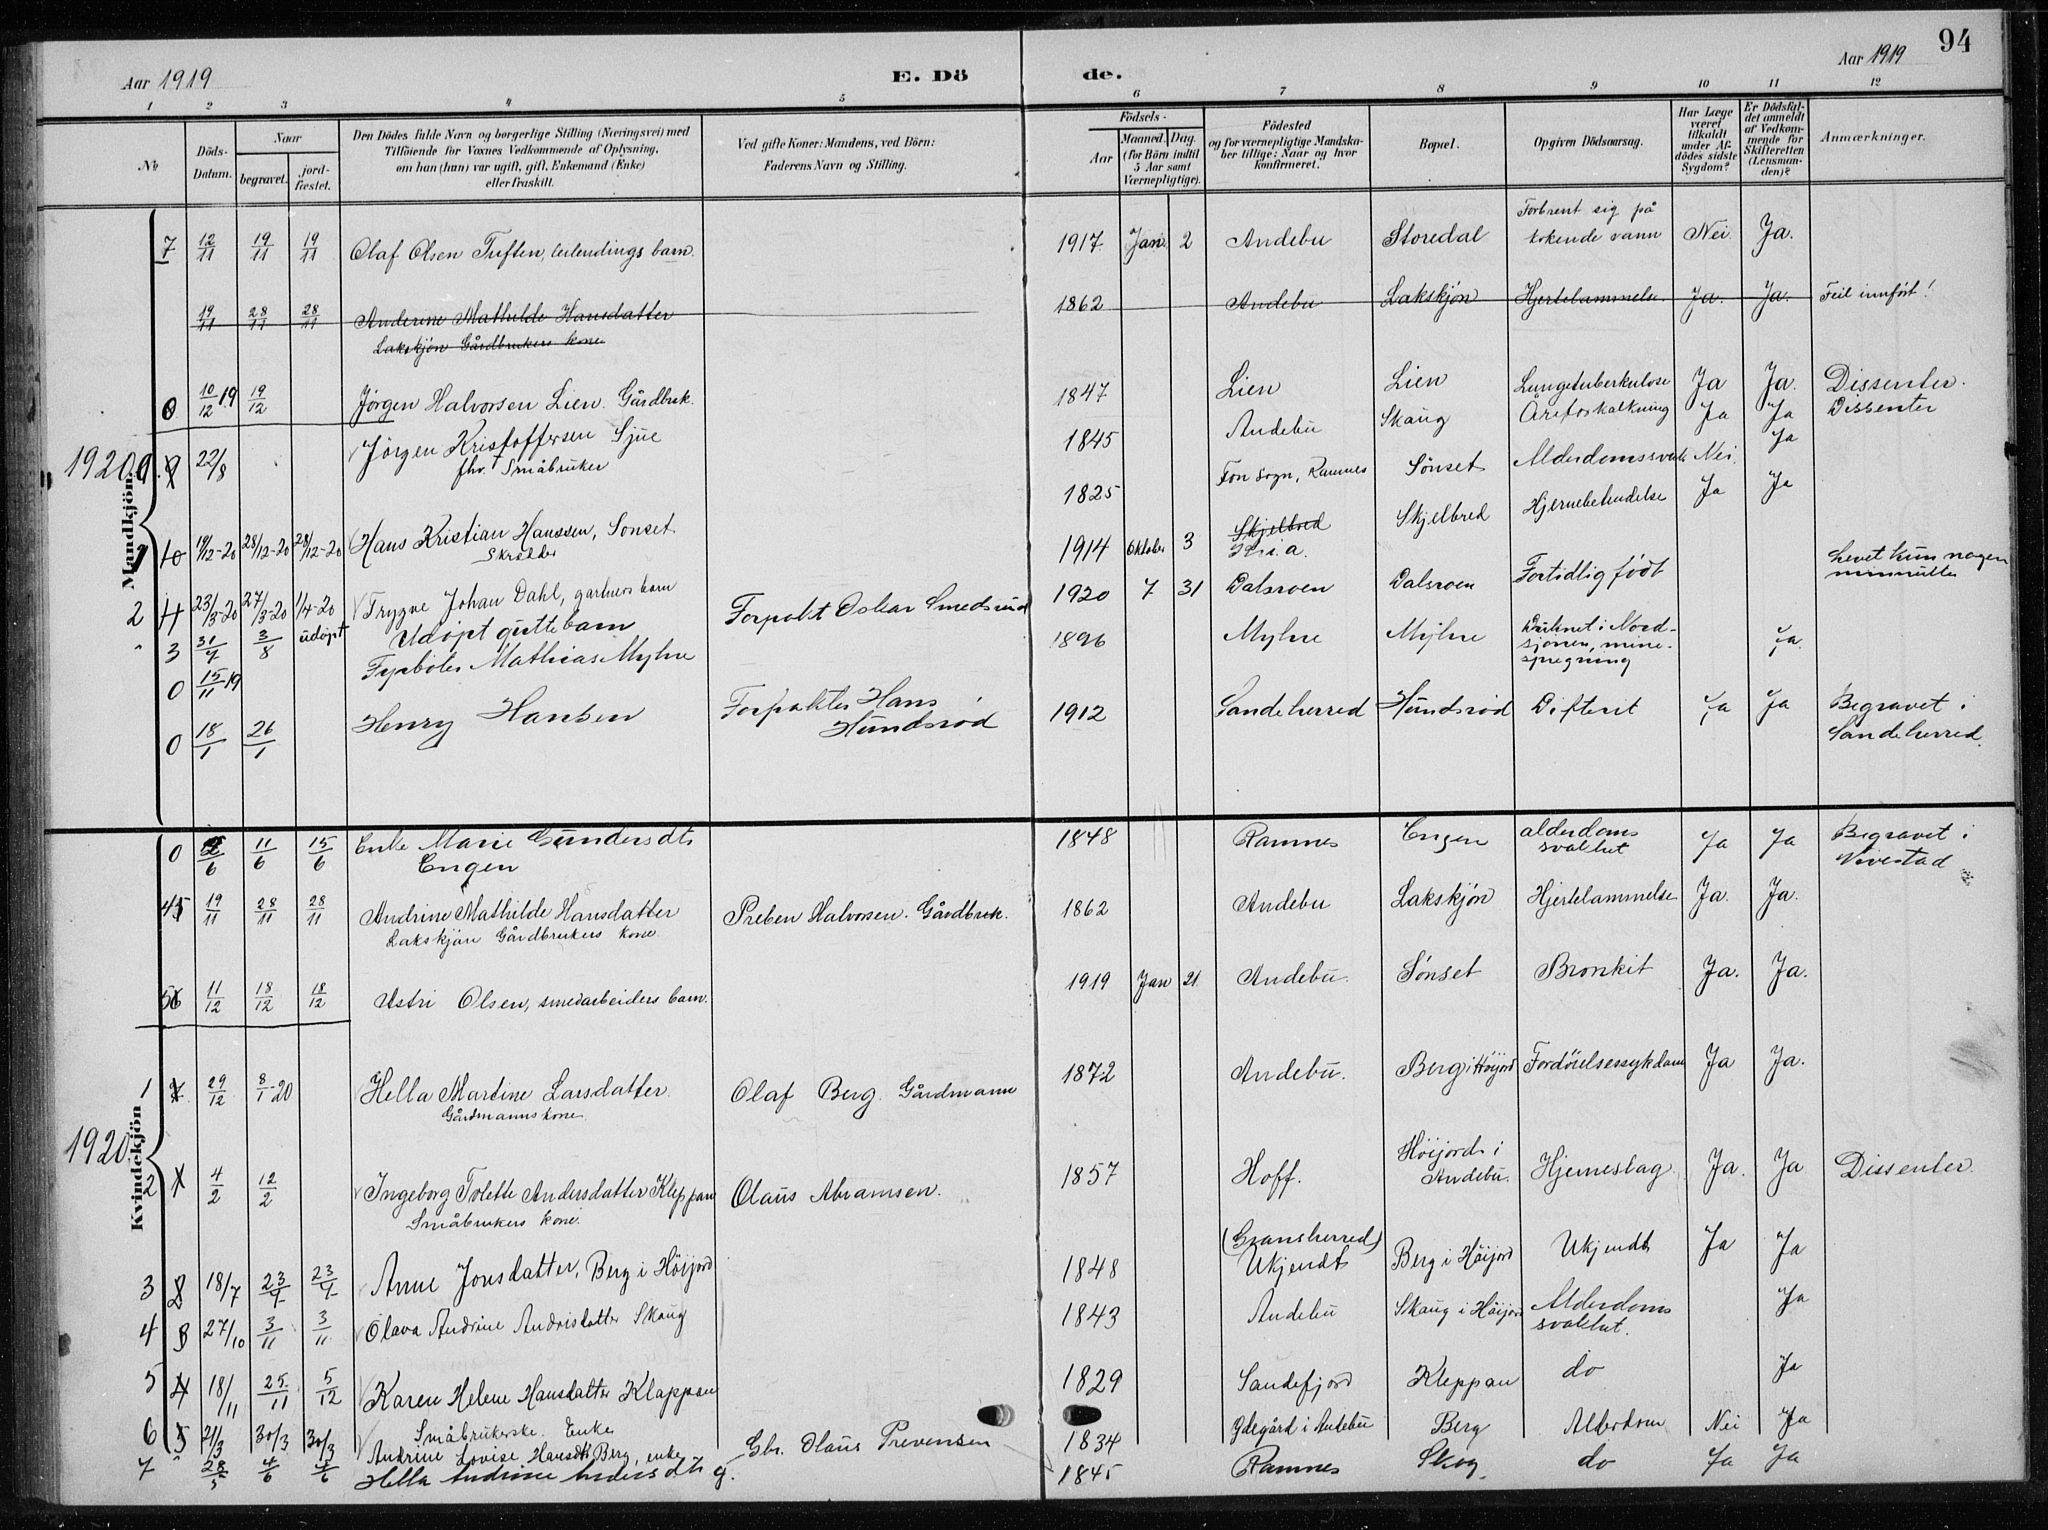 94
Aar 1919 E. Dö de. Aar 1919
1 2 3 4 5 6 7 8 9 10 11 12
No
Döds-Datum.
Naar
begravet. jord-fæstet.
Den Dödes fulde Navn og borgerlige Stilling (Næringsvei) med
Tilföiende for Voxnes Vedkommende af Oplysning,
om han (hun) var ugift, gift, Enkemand (Enke)
eller fraskilt.
Ved gifte Koner: Mandens, ved Börn:
Faderens Navn og Stilling.
Födsels-
Aar
Maaned. Dag.
(for Börn indtil
5 Aar samt
Værnepligtige).
Födested
og for værnepligtige Mandska-
ber tillige: Naar og hvor
konfirmeret.
Bopæl.
Opgiven Dödsaarsag.
Har Læge
været
tilkaldt
under Af-
dödes sidste
Sygdom?
Er Dödsfal-
det anmeldt
af Vedkom-
mende for
Skifteretten
(Lensman-
den)?
Anmærkninger.
Mandkjön.
7 12/11 19/11 19/11 Olaf Olsen Tuften, leilendings barn. 1917 Jan. 2 Andebu Storedal Forbrent sig på
kokende vann Nei. Ja.
19/11 28/11 28/11 Anderine Mathilde Hansdatter 1862 Andebu Lakskjøn Hjertelammelse Ja. Ja. Feil innført!
Lakskjøn Gårdbrukers kone
0 10/12 19 19/12 Jørgen Halvorsen Lien. Gårdbruk. 1847 Lien Lien Lungetuberkulose Ja Ja. Dissenter.
1920 22/8 Jörgen Kristoffersen Sjue 1845 Andebu Skaug Åreforkalkning Ja Ja Dissenter
fhv. Småbruker
1 10 19/12-20 28/12-20 28/12-20 Hans Kristian Hanssen, Sønset 1825 Fon sogn, Ramnes Sønset Alderdomssvakh. Nei. Ja
Skredder
2 23/3-20 27/3-20 1/4-20 Trygve Johan Dahl, gartners barn 1914 Oktober 3 Skjelbred
Kr.i.a. Skjelbred Hjernebetendelse Ja Ja
3 31/7 3/8 udöpt Udöpt guttebarn Forpakt Oskar Smedsrud 1920 7 31 Dalsroen Dalsroen Fortidlig født Levet kun nogen
minnutter
0 15/11 19 Fyrbøter Mathias Myhre 1896 Myhre Myhre Druknet i Nord-
sjøen, mine-
spregning Ja.
0 18/1 26/1 Henry Hansen Forpakter Hans
Hundsrød 1912 Sandeherred Hundsrød Difterit Ja Ja Begravet i
Sandeherred.
Kvindekjön
0 2/6 11/6 15/6 Enke Marie Gundersdt 1848 Ramnes Engen alderdoms
svakhet Ja Ja Begravet i
Vivestad
Engen
4 19/11 28/11 28/11 Andrine Mathilde Hansdatter Preben Halvorsen. Gårdbruk. 1862 Andebu Lakskjøn Hjertelammelse Ja. Ja.
Lakskjøn Gårdbrukers kone
5 11/12 18/12 18/12 Astri Olsen, smedarbeiders barn. 1919 Jan 21 Andebu. Sønset Bronkit Ja. Ja.
1 29/12 8/1-20 Hella Martine Larsdatter. Olaf Berg. Gårdmann 1872 Andebu. Berg i Höijord Fordöielsessykdom Ja Ja.
Gårdmannskone
1920.
2 4/2 12/2 Ingeborg Tolette Andersdatter Kleppan Olaus Abramsen. 1857 Hoff. Höijord i
Andebu. Hjerneslag Ja. Ja Dissenter.
Småbrukers kone.
3 18/7 23/7 23/7 Anne Jonsdatter, Berg i Höijord 1848 (Gransherred)
Ukjendt Berg i Höijord Ukjendt Ja Ja
4 27/10 3/11 3/11 Olava Andrine Andrisdatter Skaug 1843 Andebu Skaug i Höijord Alderdoms
svakhet. Ja
5 18/11 25/11 5/12 Karen Helene Hansdatter Klappan 1829 Sandefjord Kleppan do Ja
Småbrukerske. Enke
6 21/3 30/3 30/3 Andrine Lovise Hansdt Berg, enke 1834 Ydegård i Andebu Berg Alderdom Nei Ja
7 28/5 4/6 4/6 Hella Andrine Andersdt g. Gbr. Olaus Prevensen 1845 Ramnes Skog do Ja Ja